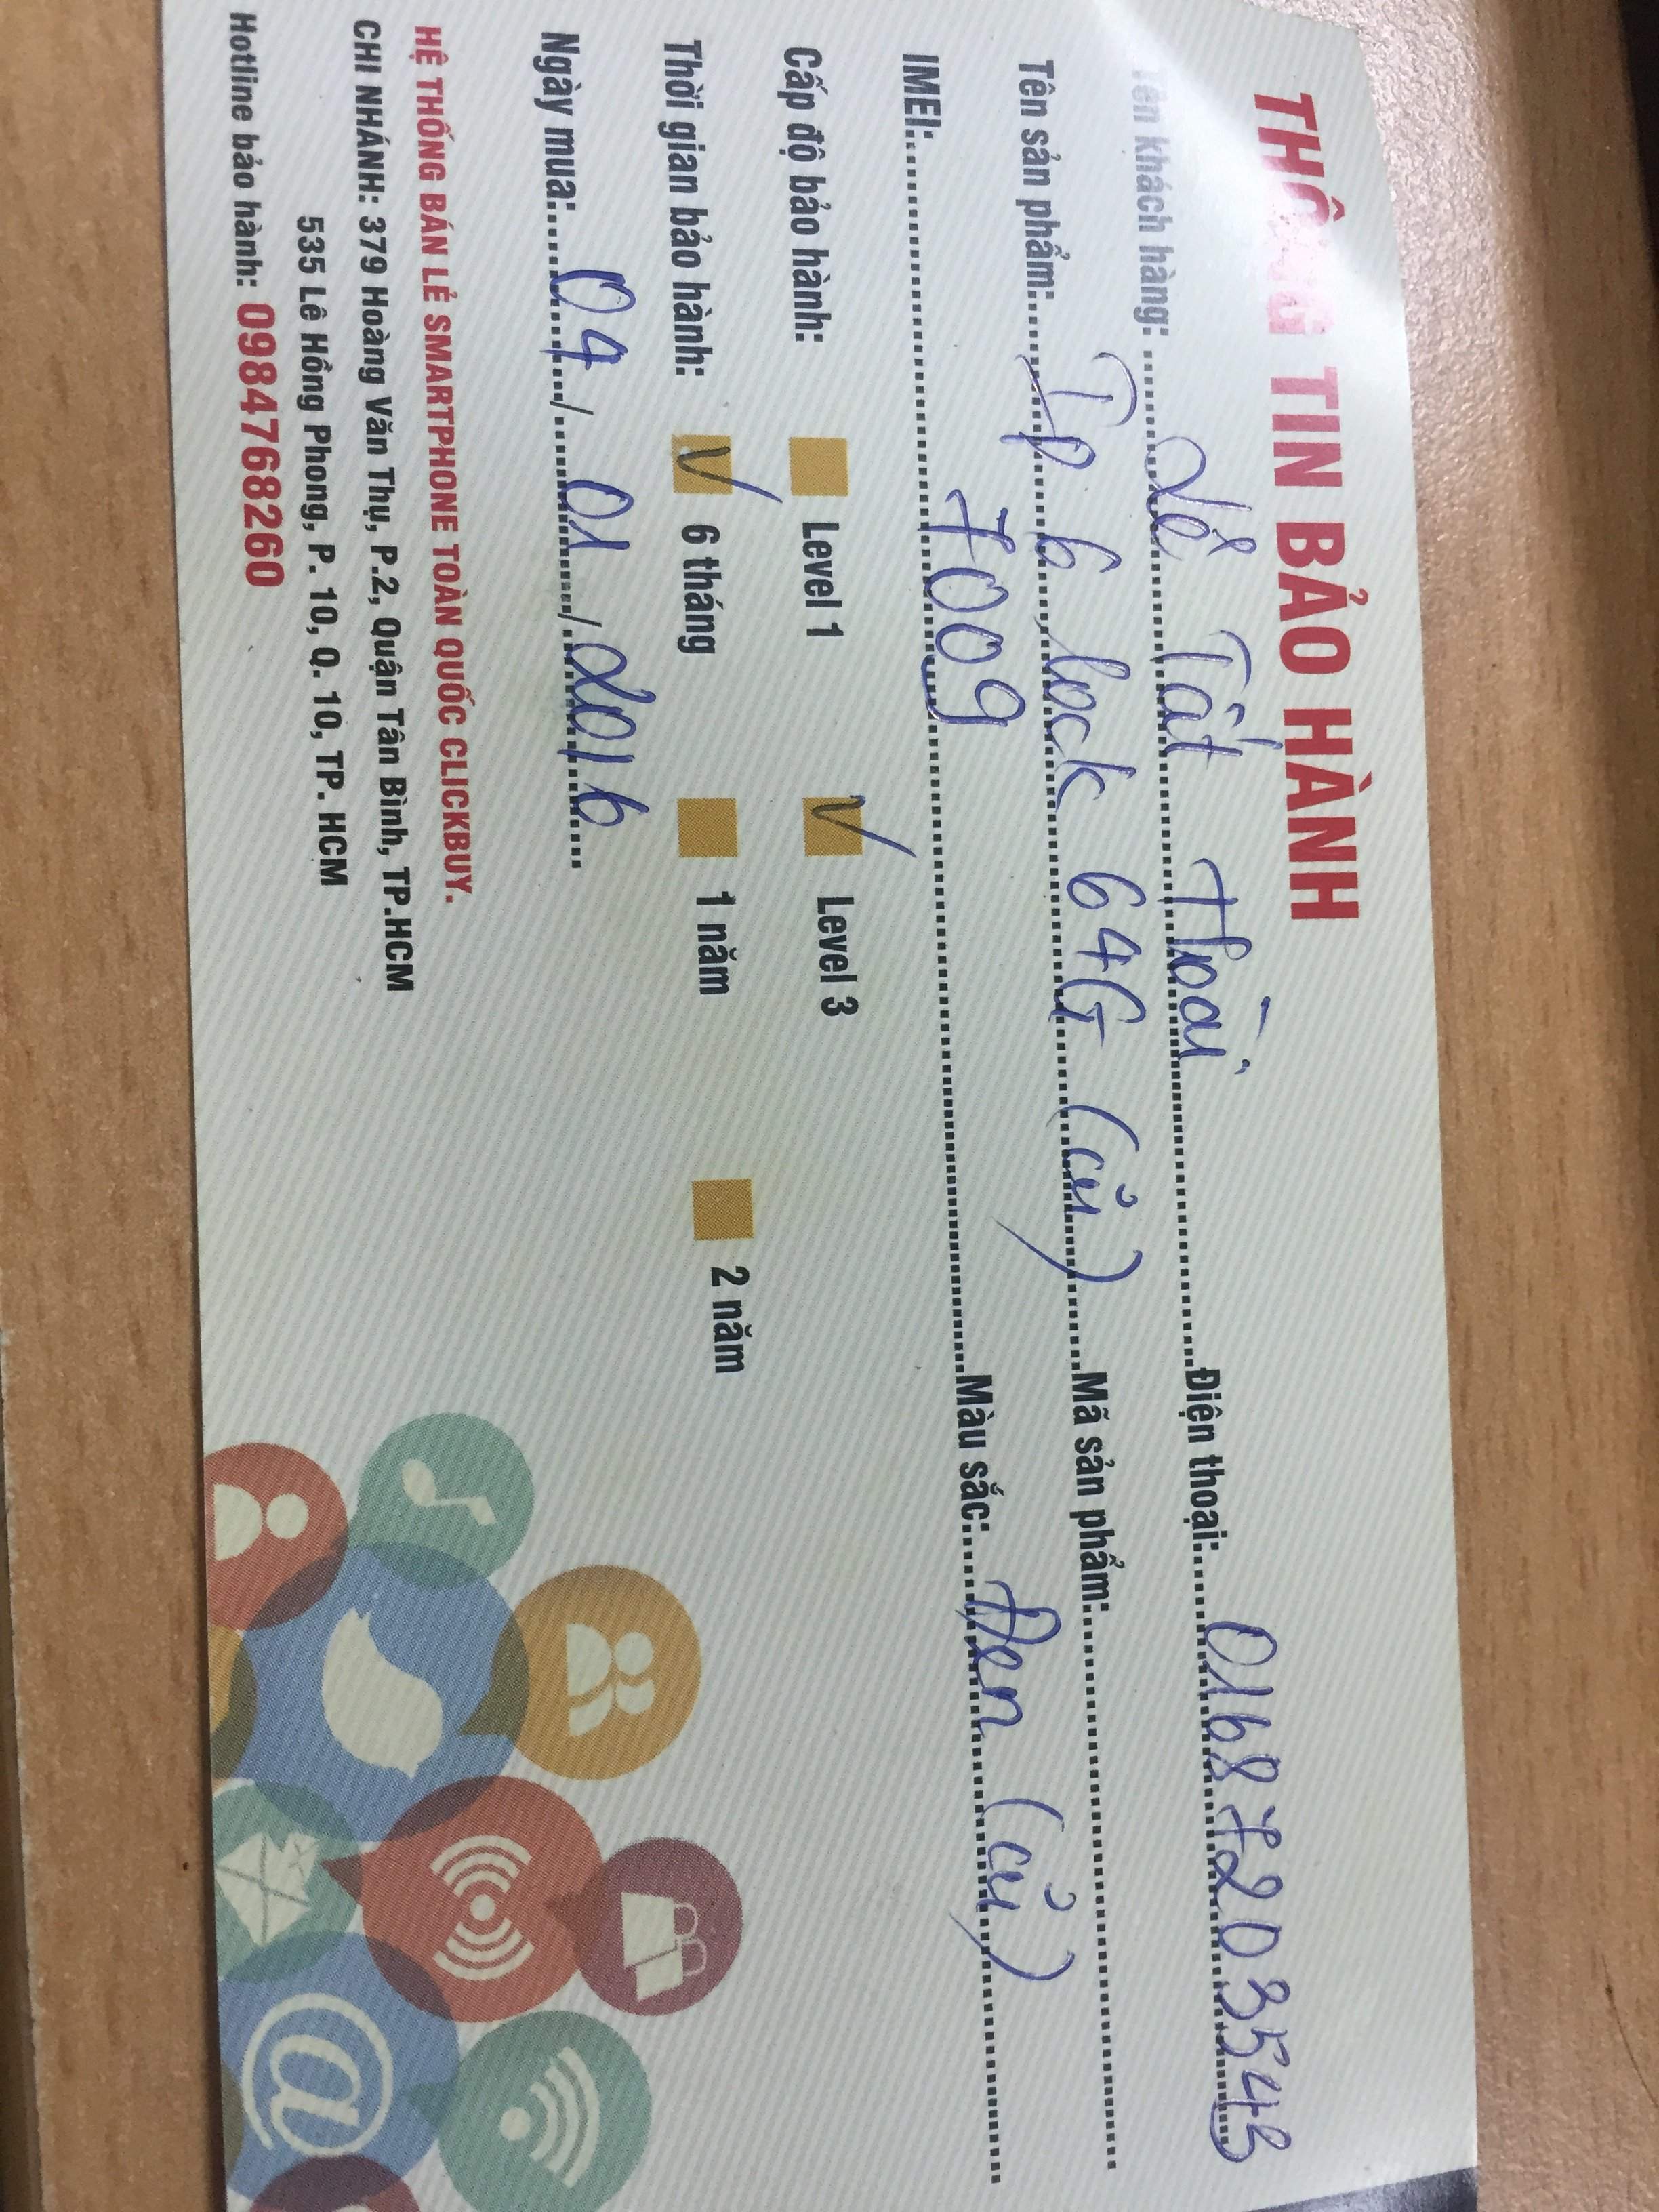 THÔNG TIN BẢO HÀNH
Tên khách hàng: Lê Tất Thoài Điện thoại: 01687203543
Tên sản phẩm: Ip 6 lock 64G (củ) Mã sản phẩm:
IMEI: 7009 Màu sắc: Đen (củ)
Cấp độ bảo hành: Level 1 Level 3
Thời gian bảo hành: 6 tháng 1 năm 2 năm
Ngày mua: 04/01/2016
HỆ THỐNG BÁN LẺ SMARTPHONE TOÀN QUỐC CLICKBUY.
CHI NHÁNH: 379 Hoàng Văn Thụ, P.2, Quận Tân Bình, TP.HCM
535 Lê Hồng Phong, P. 10, Q. 10, TP. HCM
Hotline bảo hành: 0984768260